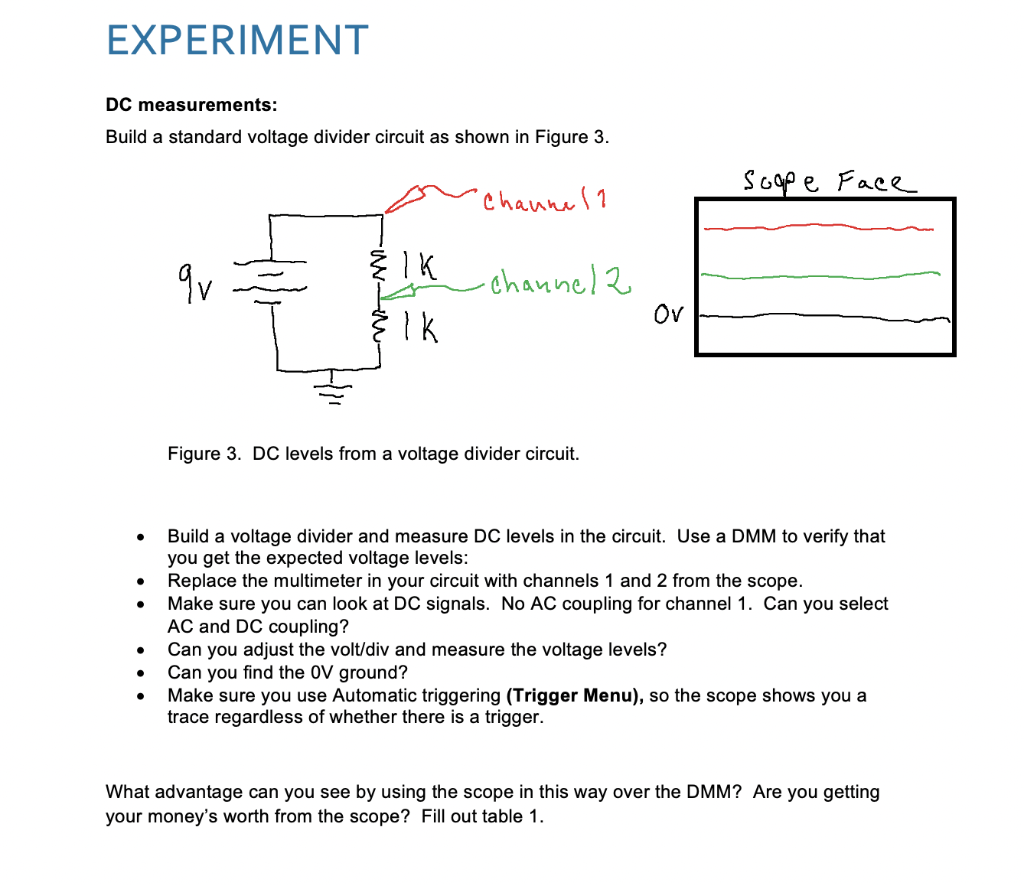 EXPERIMENT
DC measurements:
Build a standard voltage divider circuit as shown in Figure 3.
Scope Face
channel 1
9v
1K
channel 2
0v
1K
Figure 3. DC levels from a voltage divider circuit.
• Build a voltage divider and measure DC levels in the circuit. Use a DMM to verify that
you get the expected voltage levels:
• Replace the multimeter in your circuit with channels 1 and 2 from the scope.
• Make sure you can look at DC signals. No AC coupling for channel 1. Can you select
AC and DC coupling?
• Can you adjust the volt/div and measure the voltage levels?
• Can you find the 0V ground?
• Make sure you use Automatic triggering (Trigger Menu), so the scope shows you a
trace regardless of whether there is a trigger.
What advantage can you see by using the scope in this way over the DMM? Are you getting
your money's worth from the scope? Fill out table 1.